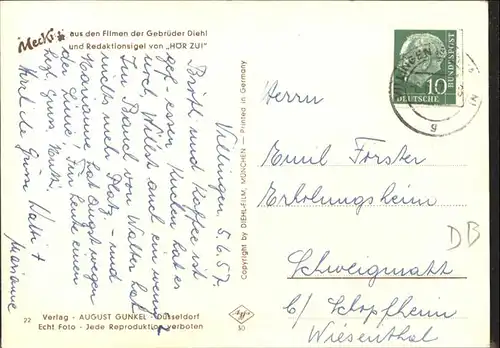 Mecki aus den Filmen der Gebrüder Diehl
und Redaktionsigel von „HÖR ZU!"
Villingen, 5.6.57.
Brötli und Kaffee ist
gegessen, Kuchen hat es
noch, Willst auch ein wenig?
Im Bauch von Walter hat
nichts mehr Platz - und
Marianne hat Angst wegen
der Linie. Für heute einen
Herzl. Grüsse Walti +
Marianne
Copyright by DIEHL-FILM, MÜNCHEN — Printed in Germany
22 Verlag - AUGUST GUNKEL - Düsseldorf
Echt Foto - Jede Reproduktion verboten
50
10
DEUTSCHE
BUNDESPOST
g
Herrn
Emil Förster
Erholungsheim
Schweigmatt
b/ Schopfheim
Wiesenthal
DB